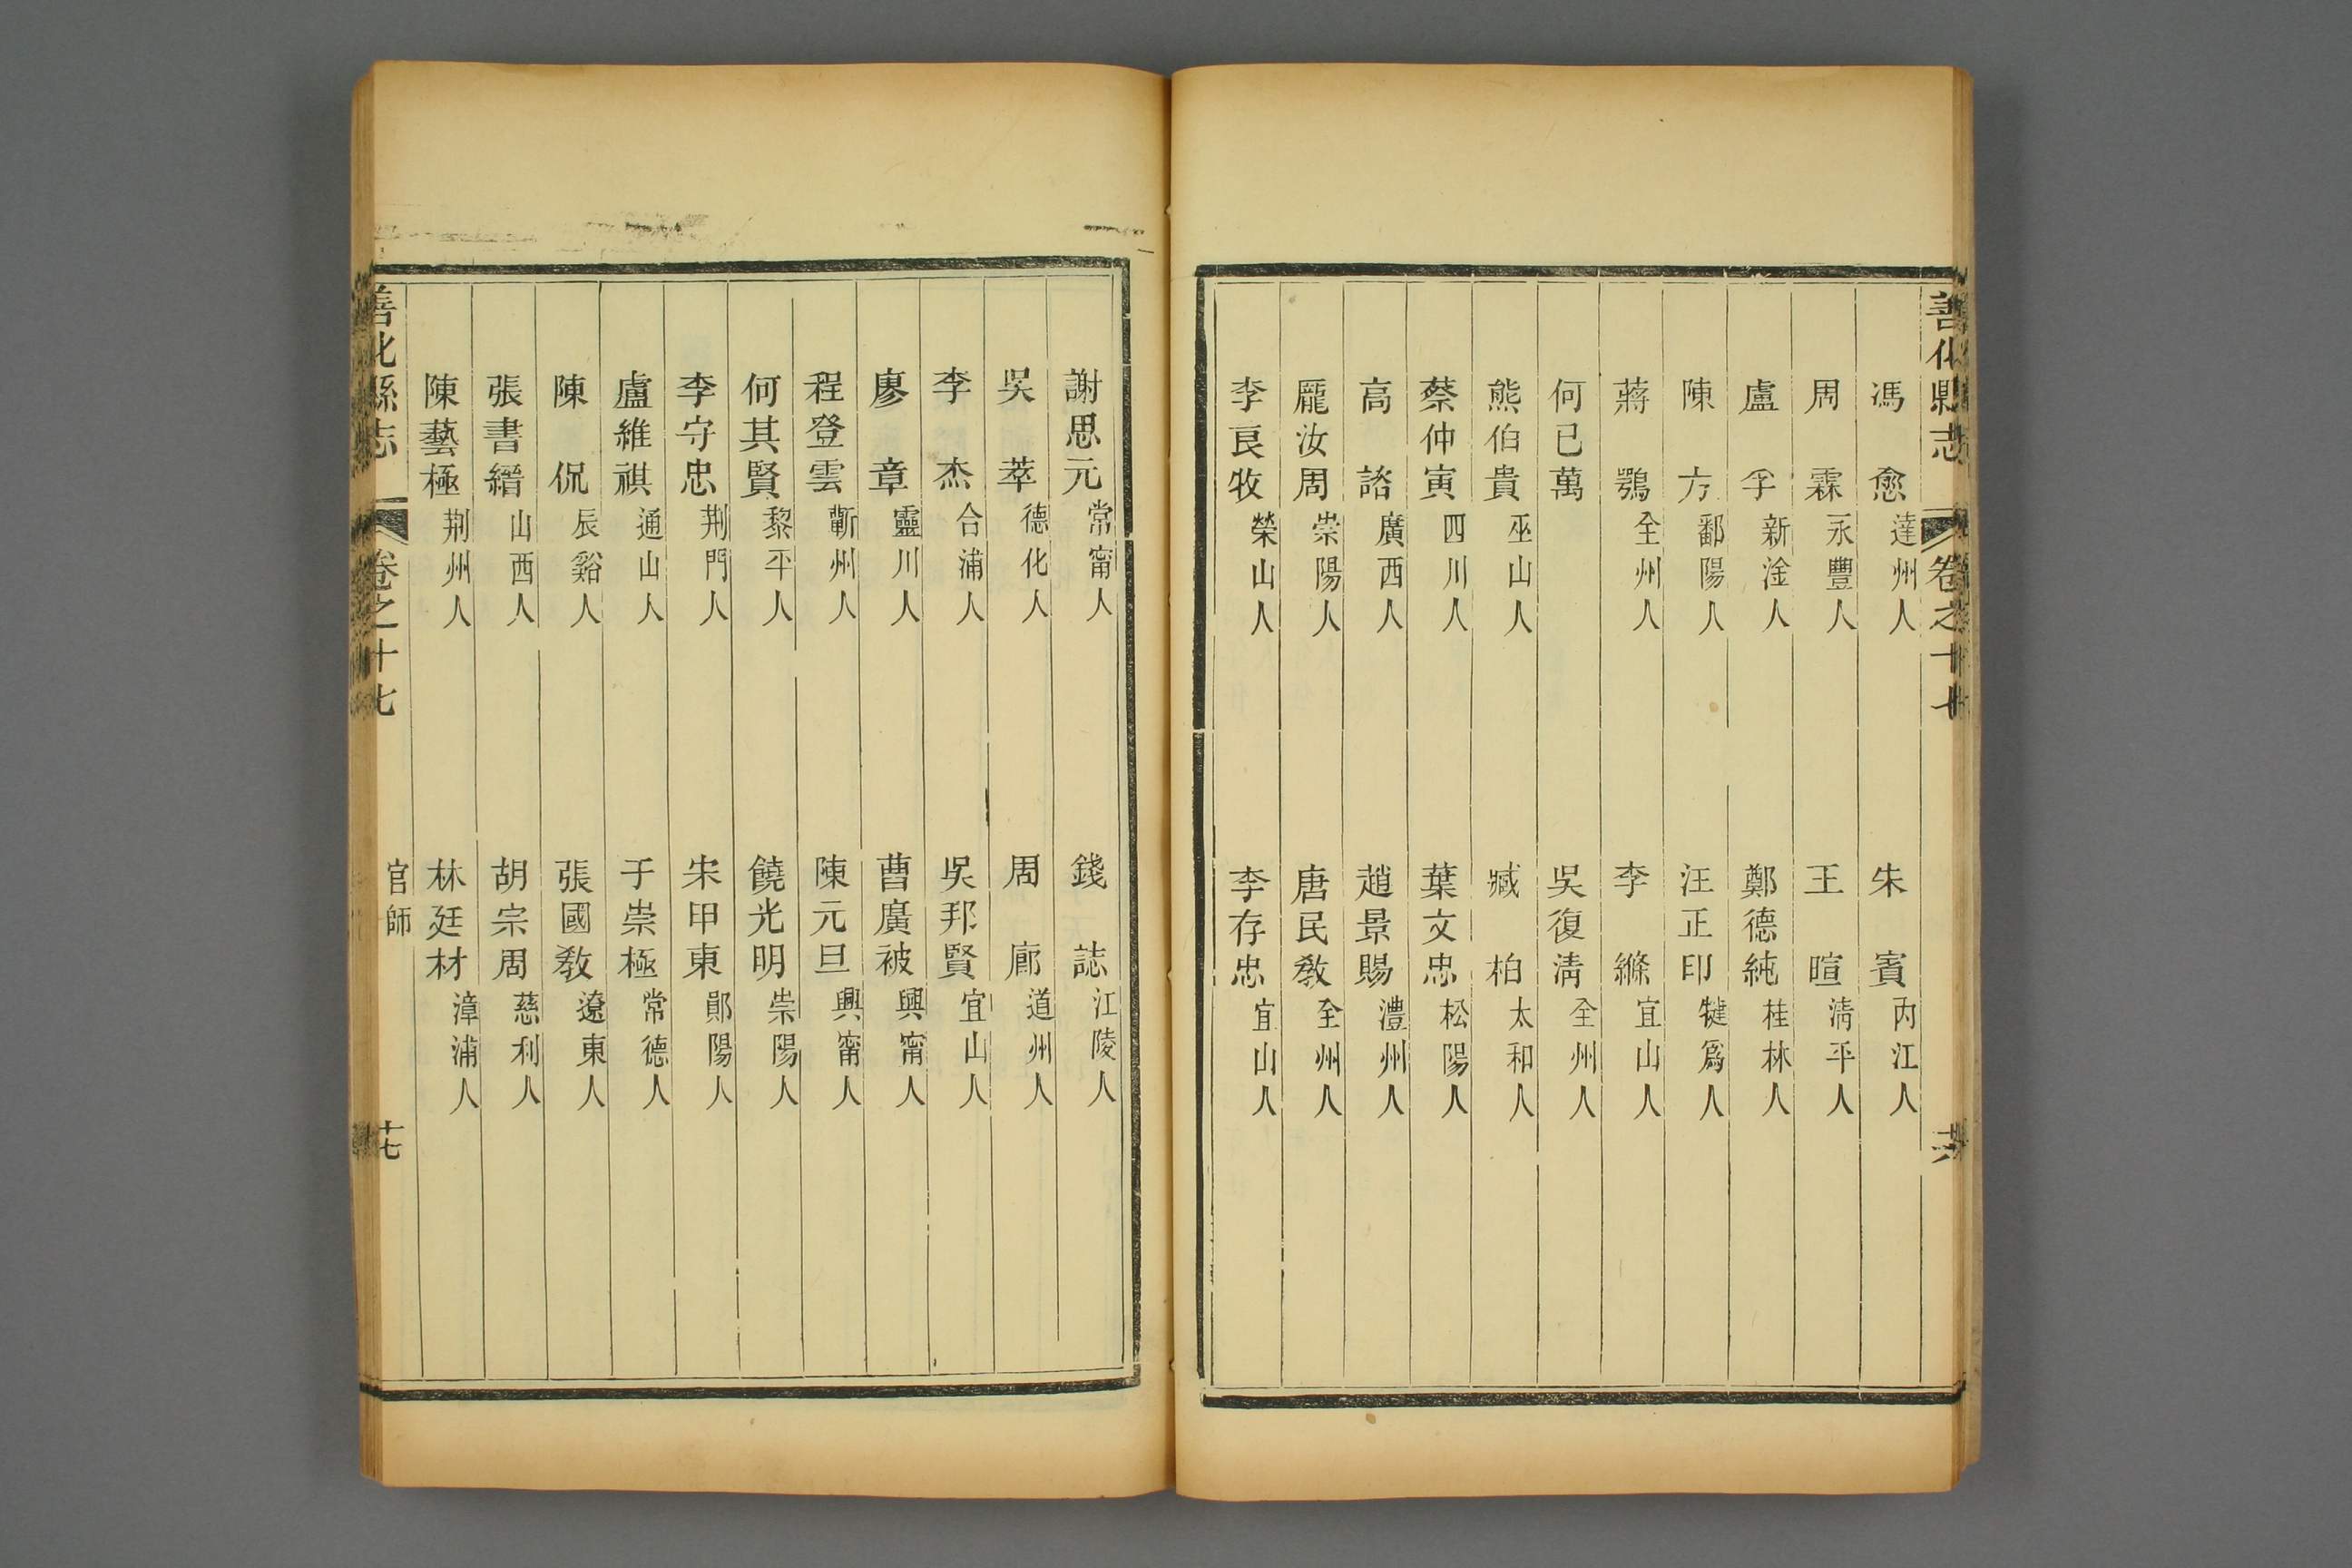 善化縣志 卷之十七 六
馮愈 達州人 朱賓 內江人
周霖 永豐人 王暄 清平人
盧孚 新淦人 鄭德純 桂林人
陳方 鄱陽人 汪正印 犍爲人
蔣鶚 全州人 李縧 宜山人
何已萬 吳復清 全州人
熊伯貴 巫山人 臧柏 太和人
蔡仲寅 四川人 葉文忠 松陽人
高諮 廣西人 趙景賜 澧州人
龎汝周 崇陽人 唐民敎 全州人
李良牧 榮山人 李存忠 宜山人
謝思元 常甯人 錢誌 江陵人
吳萃 德化人 周廊 道州人
李杰 合浦人 吳邦賢 宜山人
廖章 靈川人 曹廣被 興甯人
程登雲 蘄州人 陳元旦 興甯人
何其賢 黎平人 饒光明 崇陽人
李守忠 荆門人 宋甲東 鄖陽人
盧維祺 通山人 于崇極 常德人
陳侃 辰谿人 張國敎 遼東人
張書縉 山西人 胡宗周 慈利人
陳藝極 荆州人 林廷材 漳浦人
善化縣志 卷之十七 官師 十七